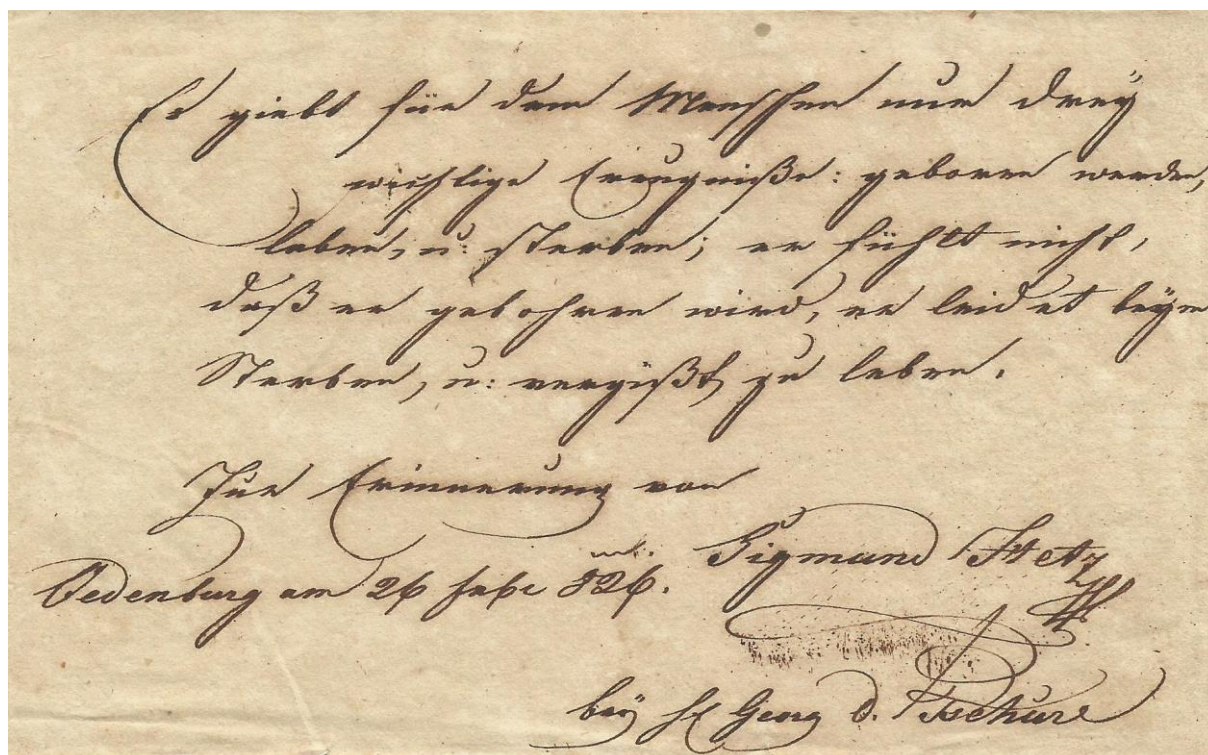 Es giebt für den Menschen nur drey
wichtige Ereugniße: geboren werden,
leben, u: sterben; er fühlt nicht,
daß er gebohren wird, er leidet beym
Sterben, u: vergißt, zu leben.
Zur Erinnerung von
Sigmund
Oedenburg am 26 826.
bey Georg d.